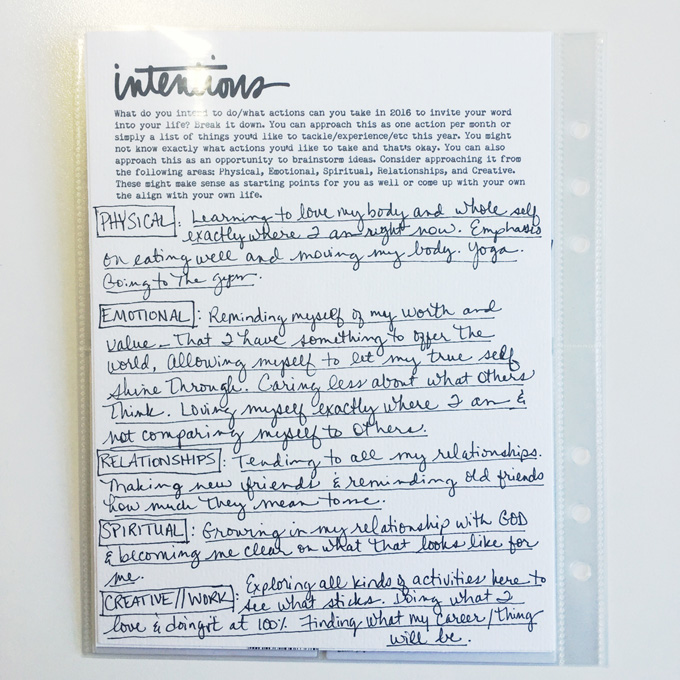 intentions
What do you intend to do/what actions can you take in 2016 to invite your word
into your life? Break it down. You can approach this as one action per month or
simply a list of things you'd like to tackle/experience/etc this year. You might
not know exactly what actions you'd like to take and thats okay. You can also
approach this as an opportunity to brainstorm ideas. Consider approaching it from
the following areas: Physical, Emotional, Spiritual, Relationships, and Creative.
These might make sense as starting points for you as well or come up with your own
the align with your own life.
PHYSICAL: Learning to love my body and whole self
exactly where I am right now. Emphasis
on eating well and moving my body. Yoga.
Going to the gym.
EMOTIONAL: Reminding myself of my worth and
value - that I have something to offer the
world, allowing myself to let my true self
shine through. Caring less about what others
think. Loving myself exactly where I am &
not comparing myself to others.
RELATIONSHIPS: Tending to all my relationships.
Making new friends & reminding old friends
how much they mean to me.
SPIRITUAL: Growing in my relationship with GOD
& becoming me clear on what that looks like for
me.
CREATIVE//WORK: Exploring all kinds of activities here to
see what sticks. Doing what I
love & doing it at 100%. Finding what my career/thing
will be.